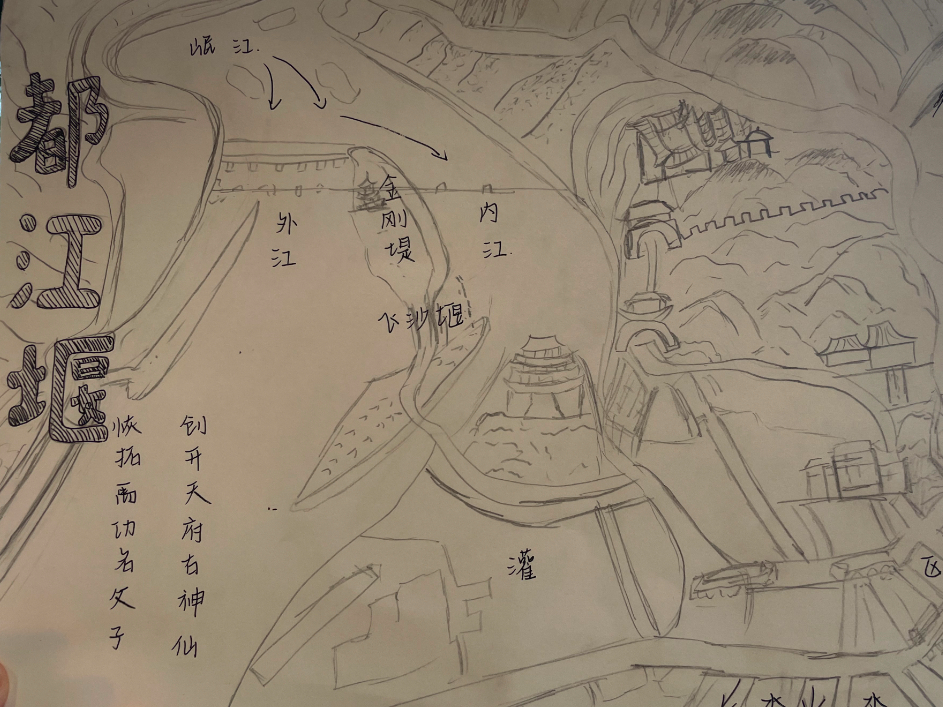 都江堰
岷江.
外江
金刚堤
内江.
飞沙堰
创开天府古神仙
恢拓禹功名父子
灌
区